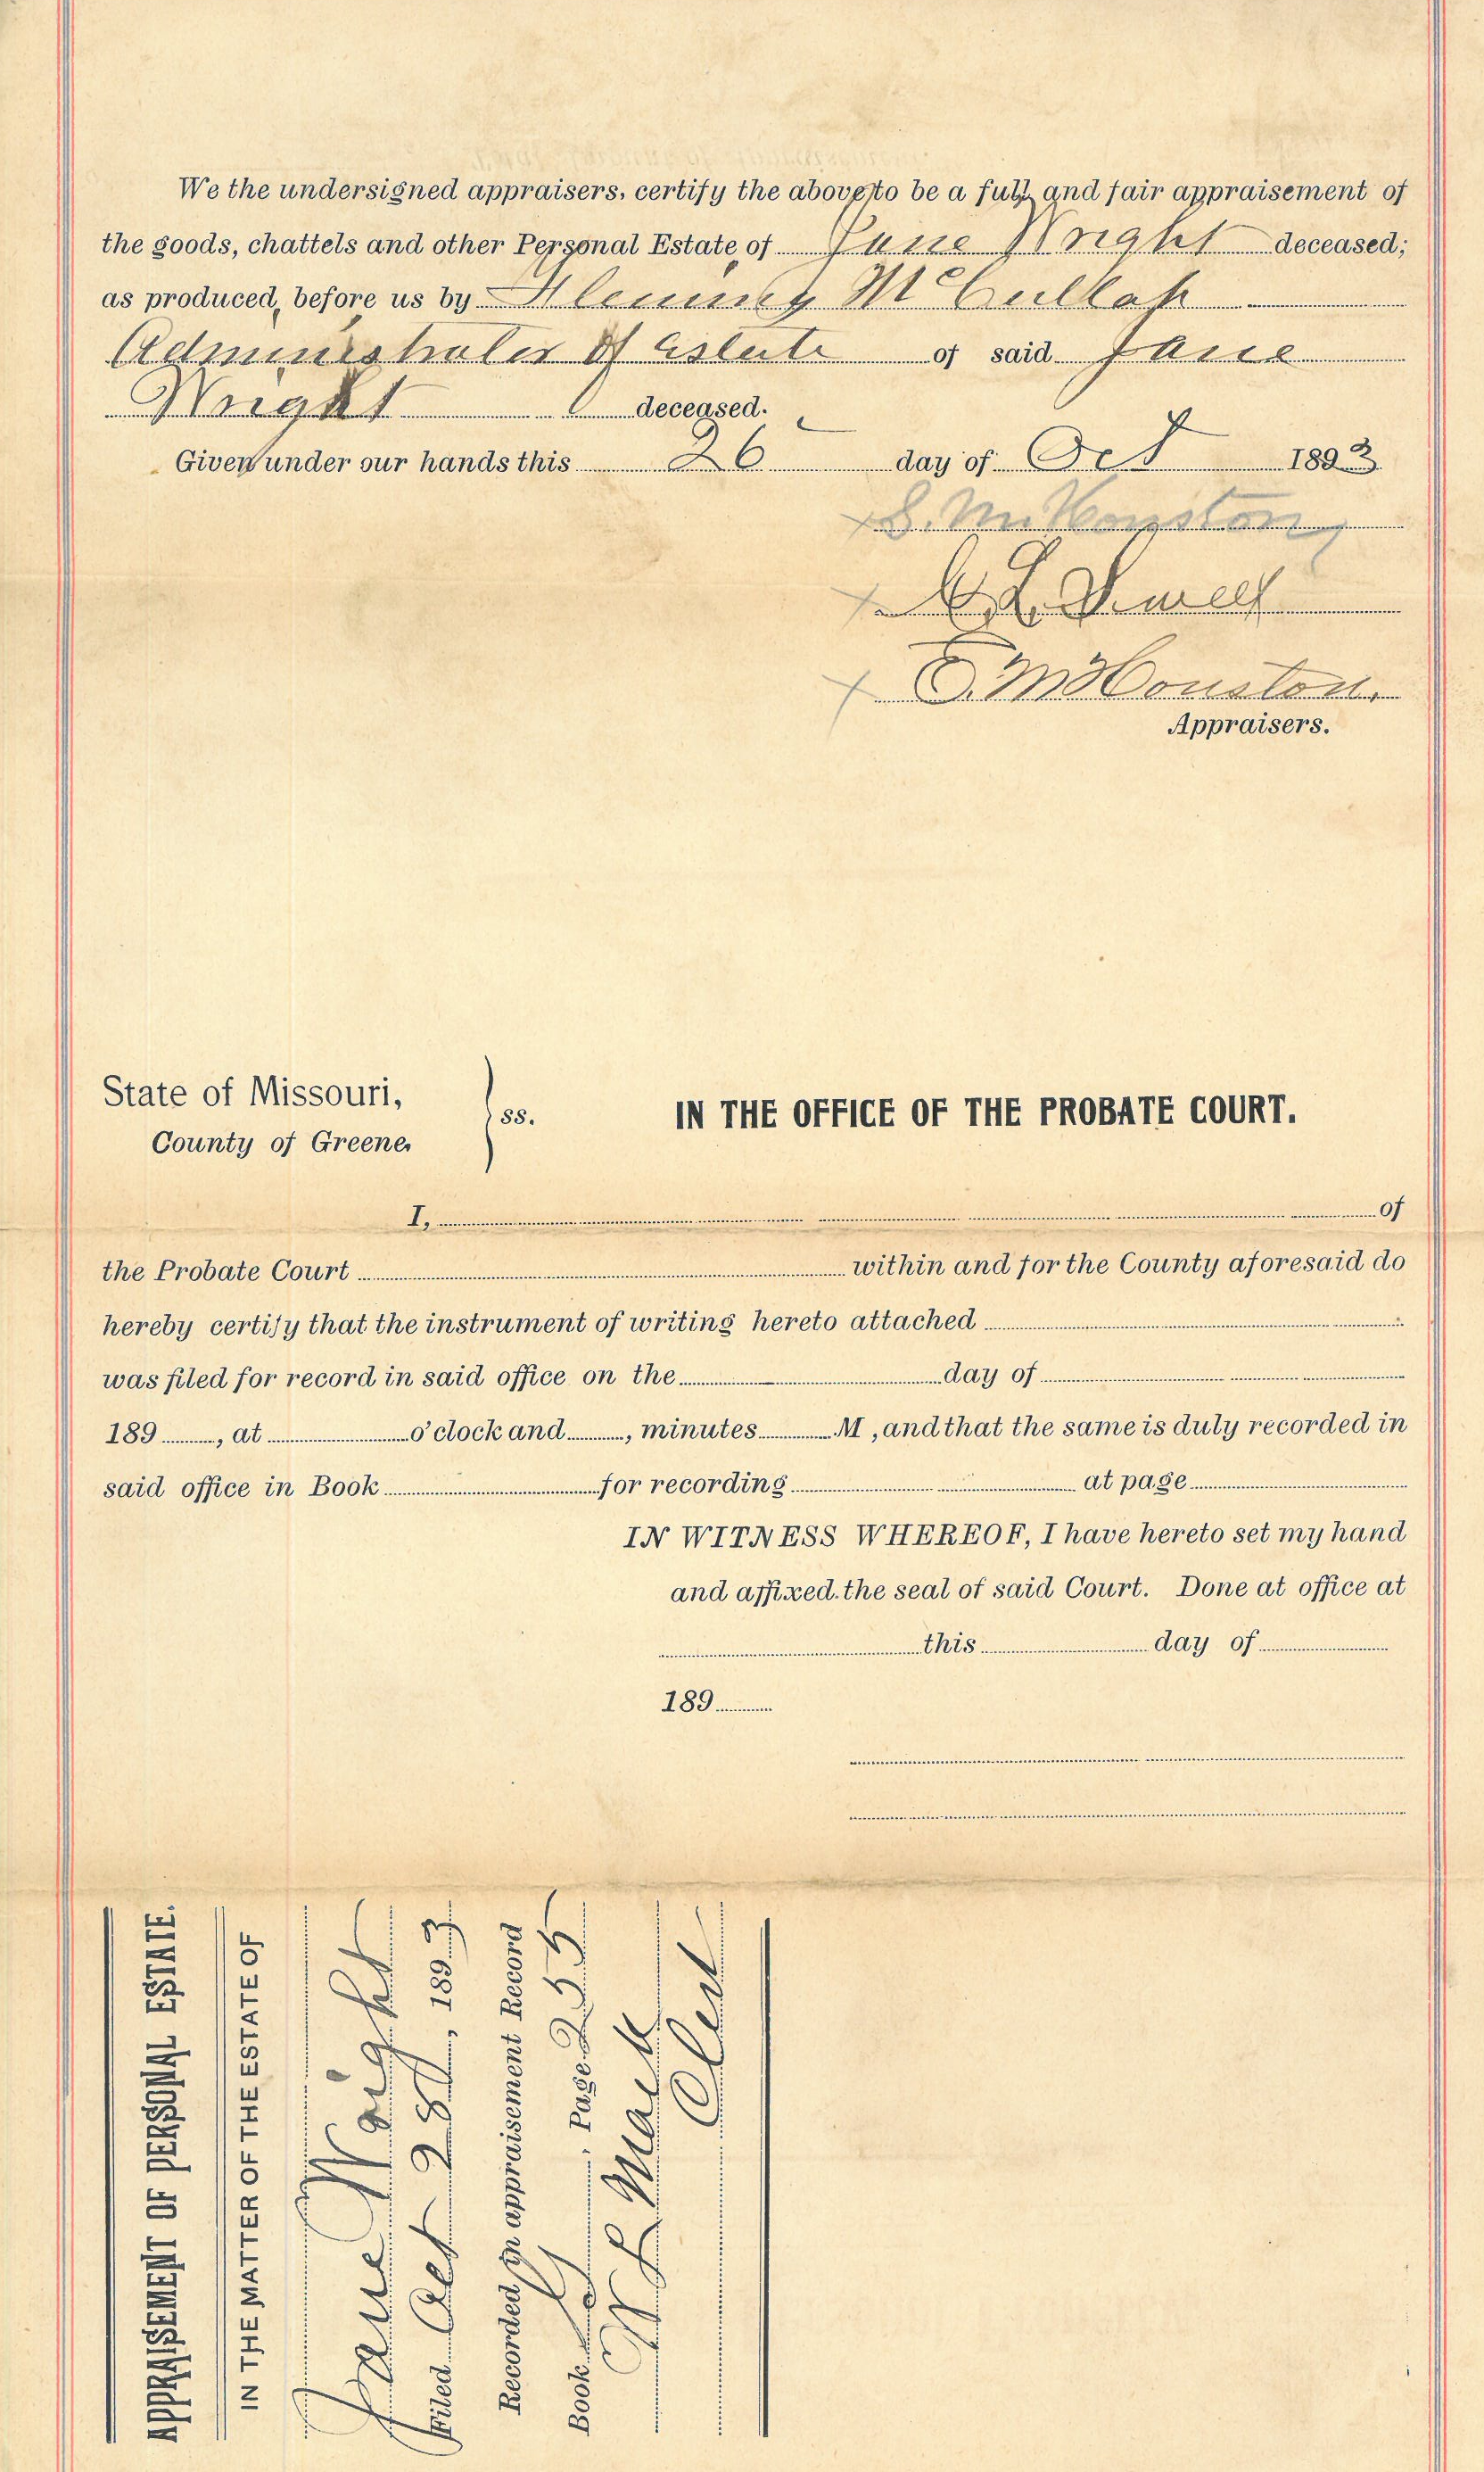 We the undersigned appraisers, certify the above to be a full and fair appraisement of
the goods, chattels and other Personal Estate of Jane Wright deceased;
as produced before us by McCullah
Administrator of estate of said Jane
Wright deceased.
Given under our hands this 26 day of Oct 1893
S. M. Houston
L.
E. M Houston.
Appraisers.
State of Missouri,
County of Greene,
ss.
IN THE OFFICE OF THE PROBATE COURT.
I, of
the Probate Court within and for the County aforesaid do
hereby certify that the instrument of writing hereto attached
was filed for record in said office on the day of
189 , at o'clock and , minutes M , and that the same is duly recorded in
said office in Book for recording at page
IN WITNESS WHEREOF, I have hereto set my hand
and affixed the seal of said Court. Done at office at
this day of
189
APPRAISEMENT OF PERSONAL ESTATE.
IN THE MATTER OF THE ESTATE OF
Jane Wright
Filed Oct 28, 1893
Recorded in appraisement Record
Book , Page 255
Mack
Clerk